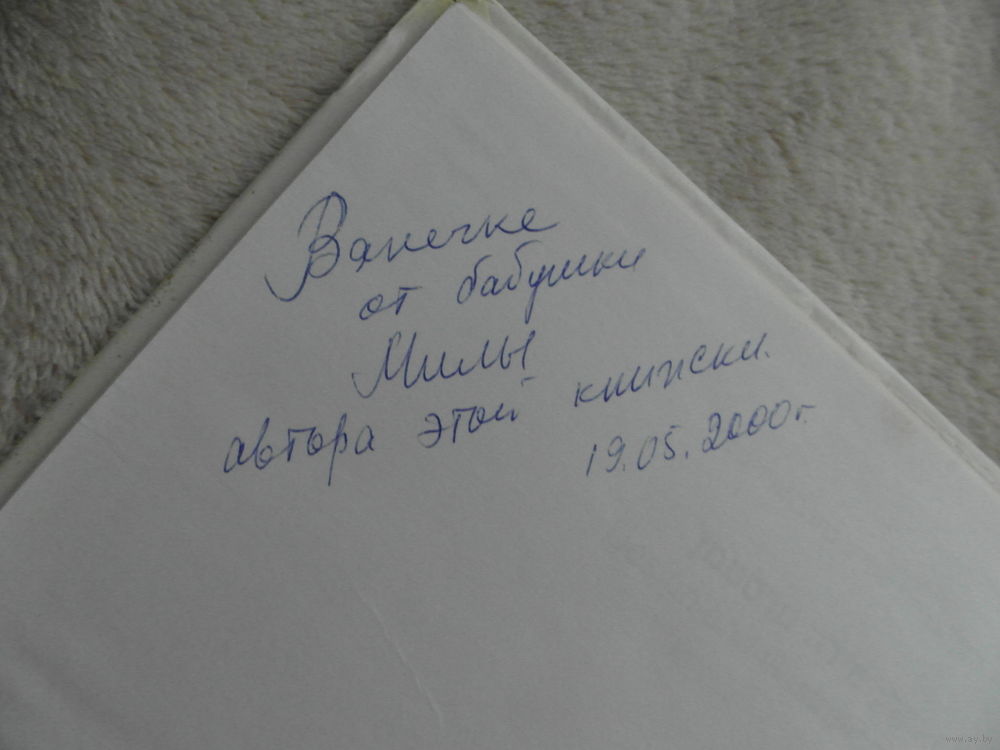 Ванечке
от бабушки
Милы
автора этой книжски.
19.05.2000г.
www.ay.by